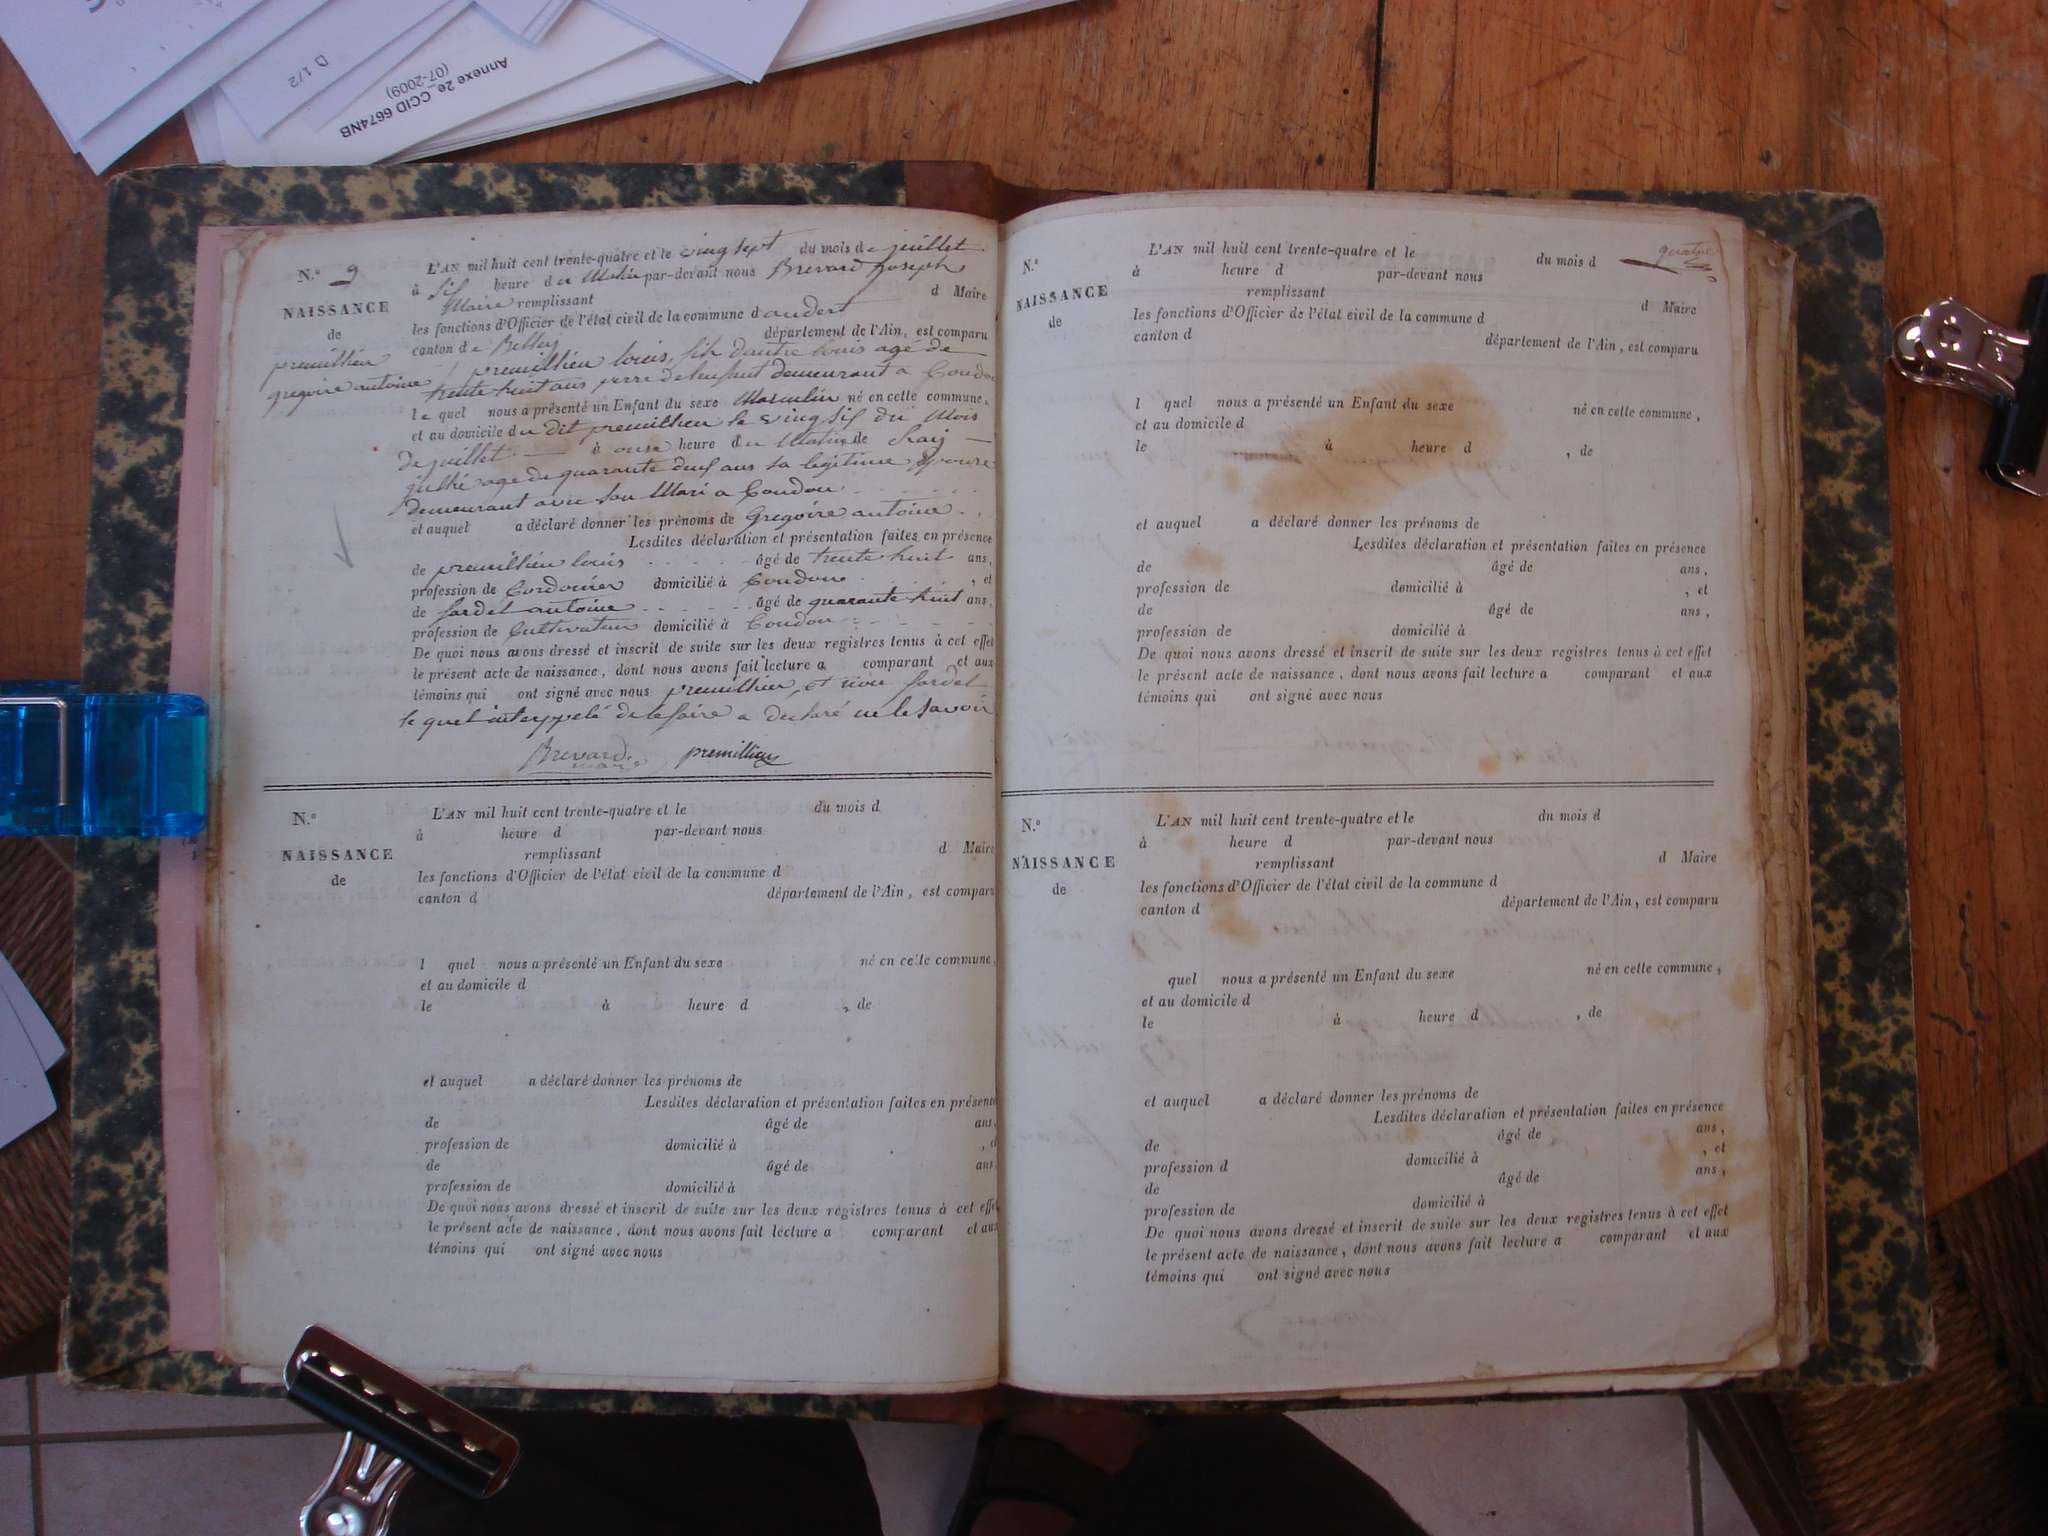 D 1/2
Annexe 2e_CCID 6674NB
(07-2009)
N.º 9
NAISSANCE
de
premillieu
gregoire antoine
L'AN mil huit cent trente-quatre et le vingt sept du mois de juillet
à six heure du Matin par-devant nous Brevard Joseph
Maire remplissant d Maire
les fonctions d'Officier de l'état civil de la commune d andert
canton de Belley département de l'Ain, est comparu
premillieu louis, fils d'autre louis agé de
trente huit ans perre de lenfant demeurant a Coudon
le quel nous a présenté un Enfant du sexe Masculin né en cette commune,
et au domicile du dit premillieu le vingt six du Mois
de juillet à onze heure du Matin, de
julhé age de quarante deux ans sa légitime epouse
demeurant avec son Mari a Coudon
et auquel a déclaré donner les prénoms de Gregoire antoine
Lesdites déclaration et présentation faites en présence
de premillieu louis âgé de trente huit ans,
profession de Cordonier domicilié à Coudon , et
de sardet antoine âgé de quarante huit ans,
profession de Cultivateur domicilié à Coudon
De quoi nous avons dressé et inscrit de suite sur les deux registres tenus à cet effet
le présent acte de naissance, dont nous avons fait lecture a comparant et aux
témoins qui ont signé avec nous premillieu, et non sardet
le quel interppelé de le faire a declaré ne le savoir
Brevard premillieu
maire
N.º
NAISSANCE
de
L'AN mil huit cent trente-quatre et le du mois d
à heure d par-devant nous
remplissant d Maire
les fonctions d'Officier de l'état civil de la commune d
canton d département de l'Ain, est comparu
l quel nous a présenté un Enfant du sexe né en cette commune,
et au domicile d
le à heure d , de
et auquel a déclaré donner les prénoms de
Lesdites déclaration et présentation faites en présence
de âgé de ans,
profession de domicilié à , et
de âgé de ans
profession de domicilié à
De quoi nous avons dressé et inscrit de suite sur les deux registres tenus à cet effet
le présent acte de naissance, dont nous avons fait lecture a comparant et aux
témoins qui ont signé avec nous
quatre
N.º
NAISSANCE
de
L'AN mil huit cent trente-quatre et le du mois d
à heure d par-devant nous
remplissant d Maire
les fonctions d'Officier de l'état civil de la commune d
canton d département de l'Ain, est comparu
l quel nous a présenté un Enfant du sexe né en cette commune,
et au domicile d
le à heure d , de
et auquel a déclaré donner les prénoms de
Lesdites déclaration et présentation faites en présence
de âgé de ans,
profession de domicilié à , et
de âgé de ans,
profession de domicilié à
De quoi nous avons dressé et inscrit de suite sur les deux registres tenus à cet effet
le présent acte de naissance, dont nous avons fait lecture a comparant et aux
témoins qui ont signé avec nous
N.º
NAISSANCE
de
L'AN mil huit cent trente-quatre et le du mois d
à heure d par-devant nous
remplissant d Maire
les fonctions d'Officier de l'état civil de la commune d
canton d département de l'Ain, est comparu
quel nous a présenté un Enfant du sexe né en cette commune,
et au domicile d
le à heure d , de
et auquel a déclaré donner les prénoms de
Lesdites déclaration et présentation faites en présence
de âgé de ans,
profession d domicilié à , et
de âgé de ans,
profession de domicilié à
De quoi nous avons dressé et inscrit de suite sur les deux registres tenus à cet effet
le présent acte de naissance, dont nous avons fait lecture a comparant et aux
témoins qui ont signé avec nous